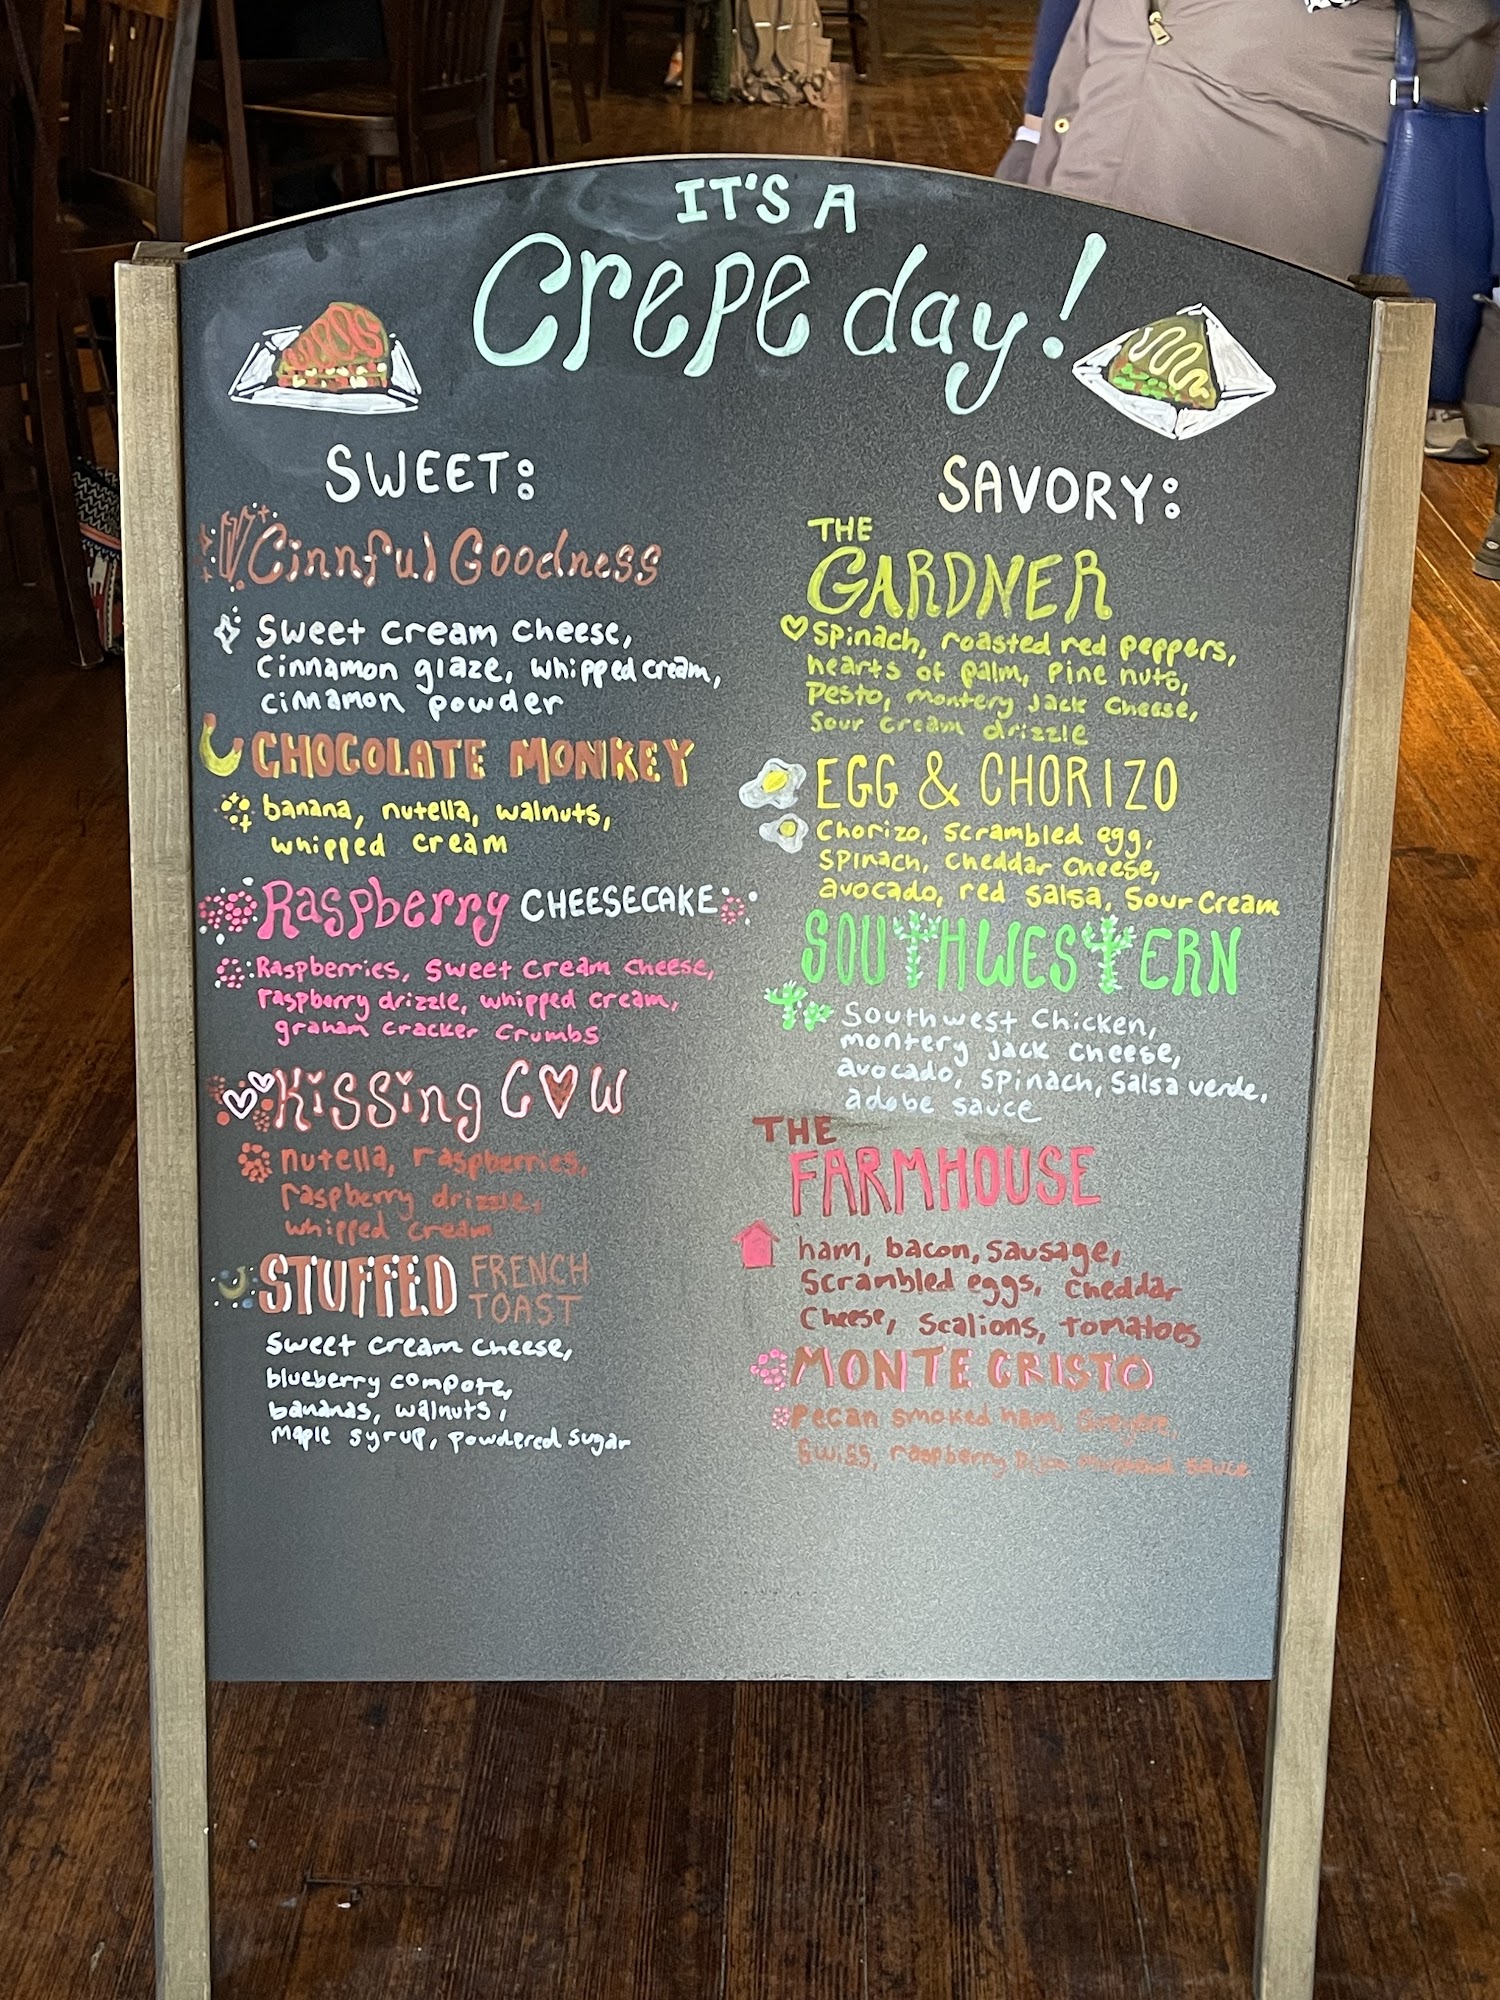 IT'S A
Crepe day!
SWEET:
Cinnful Goodness
Sweet cream cheese,
cinnamon glaze, whipped cream,
cinnamon powder
CHOCOLATE MONKEY
banana, nutella, walnuts,
whipped cream
Raspberry CHEESECAKE
Raspberries, sweet cream cheese,
raspberry drizzle, whipped cream,
graham cracker crumbs
Kissing COW
nutella, raspberries,
raspberry drizzle,
whipped cream
STUFFED FRENCH
TOAST
Sweet cream cheese,
blueberry compote,
bananas, walnuts,
maple syrup, powdered sugar
SAVORY:
THE
GARDNER
Spinach, roasted red peppers,
hearts of palm, pine nuts,
Pesto, montery Jack cheese,
Sour cream drizzle
EGG & CHORIZO
Chorizo, scrambled egg,
spinach, cheddar cheese,
avocado, red salsa, Sour Cream
SOUTHWESTERN
Southwest chicken,
montery jack cheese,
avocado, spinach, salsa verde,
adobe sauce
THE
FARMHOUSE
ham, bacon, sausage,
Scrambled eggs, cheddar
Cheese, scalions, tomatoes
MONTE CRISTO
Pecan smoked ham,
Swiss, raspberry Dijon sauce